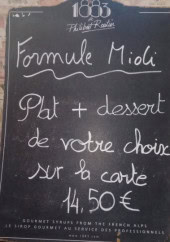 1883
Philibert Routin
Formule Midi
Plat + dessert
de votre choix
sur la carte
14,50€
GOURMET SYRUPS FROM THE FRENCH ALPS
LE SIROP GOURMET AU SERVICE DES PROFESSIONNELS